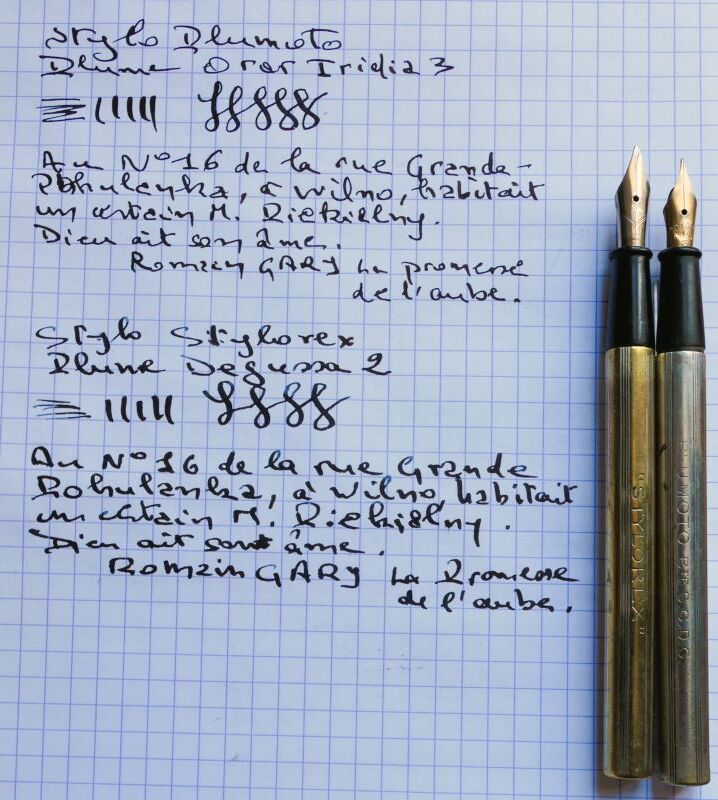 Stylo Plumoto
Plume Orar Iridia 3
Au N° 16 de la rue Grande-
Pohulanka, à Wilno, habitait
un certain M. Piekielny.
Dieu ait son âme.
Romain GARY La promesse
de l'aube.
Stylo Stylorex
Plume Degussa 2
Au N° 16 de la rue Grande
Pohulanka, à Wilno, habitait
un certain M. Piekielny.
Dieu ait son âme.
Romain GARY La Promesse
de l'aube.
"STYLOREX"
PLUMOTO